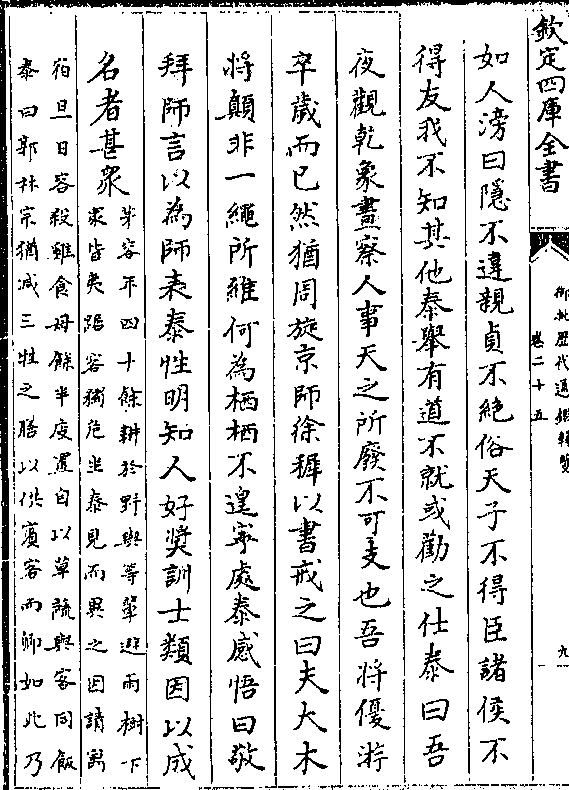 欽定四庫全書
御批歷代通鑑輯覽
卷二十五
九
如人滂曰隱不違親貞不絶俗天子不得臣諸侯不
得友我不知其他泰舉有道不就或勸之仕泰曰吾
夜觀乾象晝察人事天之所廢不可支也吾將優游
卒歲而已然猶周旋京師徐穉以書戒之曰夫大木
將顛非一繩所維何為栖栖不遑寧處泰感悟曰敬
拜師言以為師表泰性明知人好奬訓士類因以成
名者甚衆
茅容年四十餘耕於野與等輩避雨樹下
衆皆夷踞容獨危坐泰見而異之因請寓
宿旦日容殺雞食母餘半庋置自以草蔬與客同飯
泰曰郭林宗猶减三牲之膳以供賓客而卿如此乃